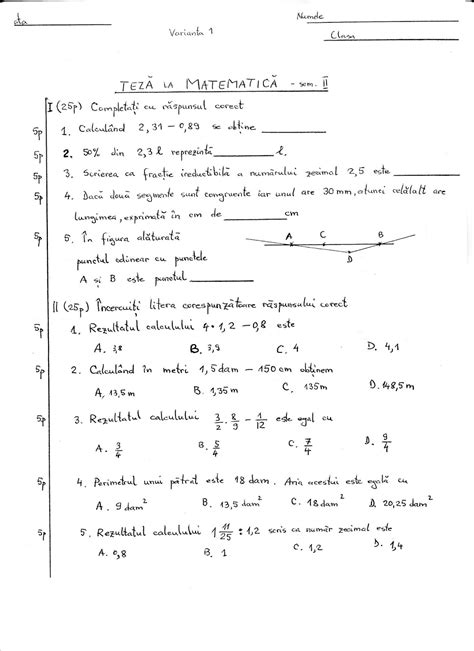 ata
Numele
Varianta 1
Clasa
TEZĂ LA MATEMATICĂ - sem. II
I (25p) Completați cu răspunsul corect
5p 1. Calculând 2,31 - 0,89 se obține
5p 2. 50% din 2,3 l reprezintă l.
5p 3. Scrierea ca fracție ireductibilă a numărului zecimal 2,5 este
5p 4. Dacă două segmente sunt congruente iar unul are 30 mm, atunci celălalt are
lungimea, exprimată în cm de cm
5p 5. În figura alăturată
A C B
punctul colinear cu punctele
D
A și B este punctul
II (25p) Încercuiți litera corespunzătoare răspunsului corect
5p 1. Rezultatul calculului 4·1,2 - 0,8 este
A. 3,8 B. 3,9 C. 4 D. 4,1
5p 2. Calculând în metri 1,5 dam - 150 cm obținem
A. 13,5 m B. 1,35 m C. 135 m D. 148,5 m
5p 3. Rezultatul calculului 3/2 · 8/9 - 1/12 este egal cu
A. 3/4 B. 5/4 C. 7/4 D. 9/4
5p 4. Perimetrul unui pătrat este 18 dam. Aria acestui este egală cu
A. 9 dam² B. 13,5 dam² C. 18 dam² D. 20,25 dam²
5p 5. Rezultatul calculului 1 11/25 : 1,2 scris ca număr zecimal este
A. 0,8 B. 1 C. 1,2 D. 1,4